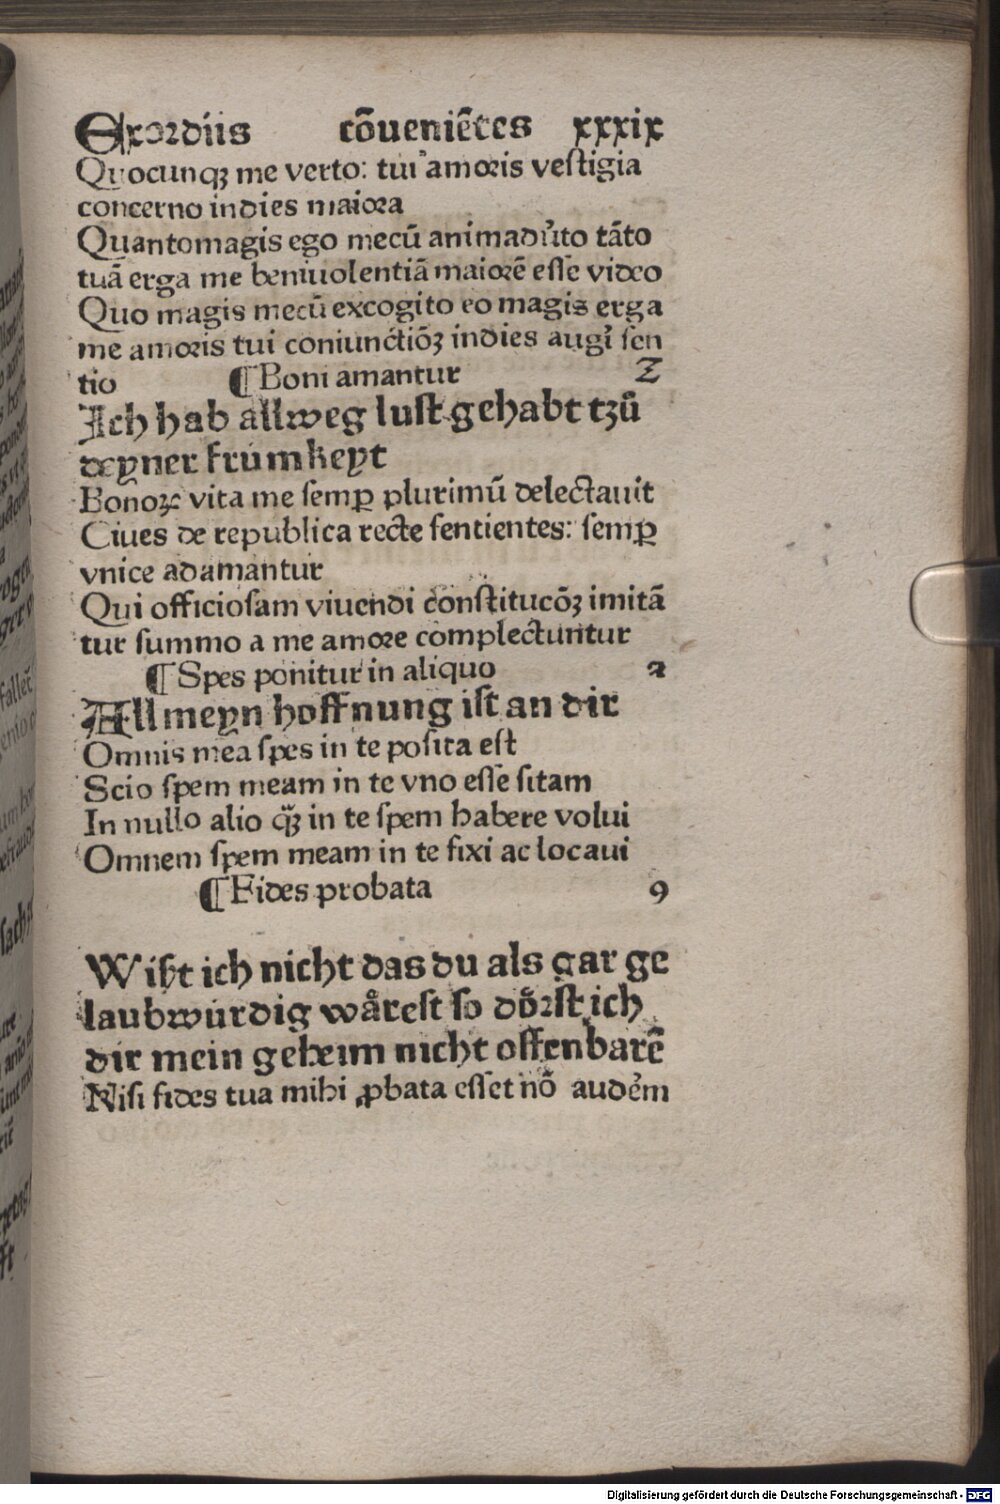 Exordiis cōueniētes xxxix
Quocunqꝫ me verto: tui amoris vestigia
concerno indies maiora
Quantomagis ego mecū animadu̓to tāto
tuā erga me beniuolentiā maiorē esse video
Quo magis mecū excogito eo magis erga
me amoris tui coniunctiōꝫ indies augi̓ sen
tio ¶ Boni amantur Z
Ich hab allweg lust gehabt tzů
deyner frumkeyt
Bonoꝝ vita me semꝑ plurimū delectauit
Ciues de republica recte sentientes: semꝑ
vnice adamantur
Qui officiosam viuendi constitucōꝫ imitā
tur summo a me amore complectuntur
¶ Spes ponitur in aliquo ꝛ
All meyn hoffnung ist an dir
Omnis mea spes in te posita est
Scio spem meam in te vno esse sitam
In nullo alio qꝫ̄ in te spem habere volui
Omnem spem meam in te fixi ac locaui
¶ Fides probata 9
Wißt ich nicht das du als gar ge
laubwurdig wårest so dörst ich
dir mein geheim nicht offenbarē
Nisi fides tua mihi ꝓbata esset nō aude̓m
Digitalisierung gefördert durch die Deutsche Forschungsgemeinschaft - DFG